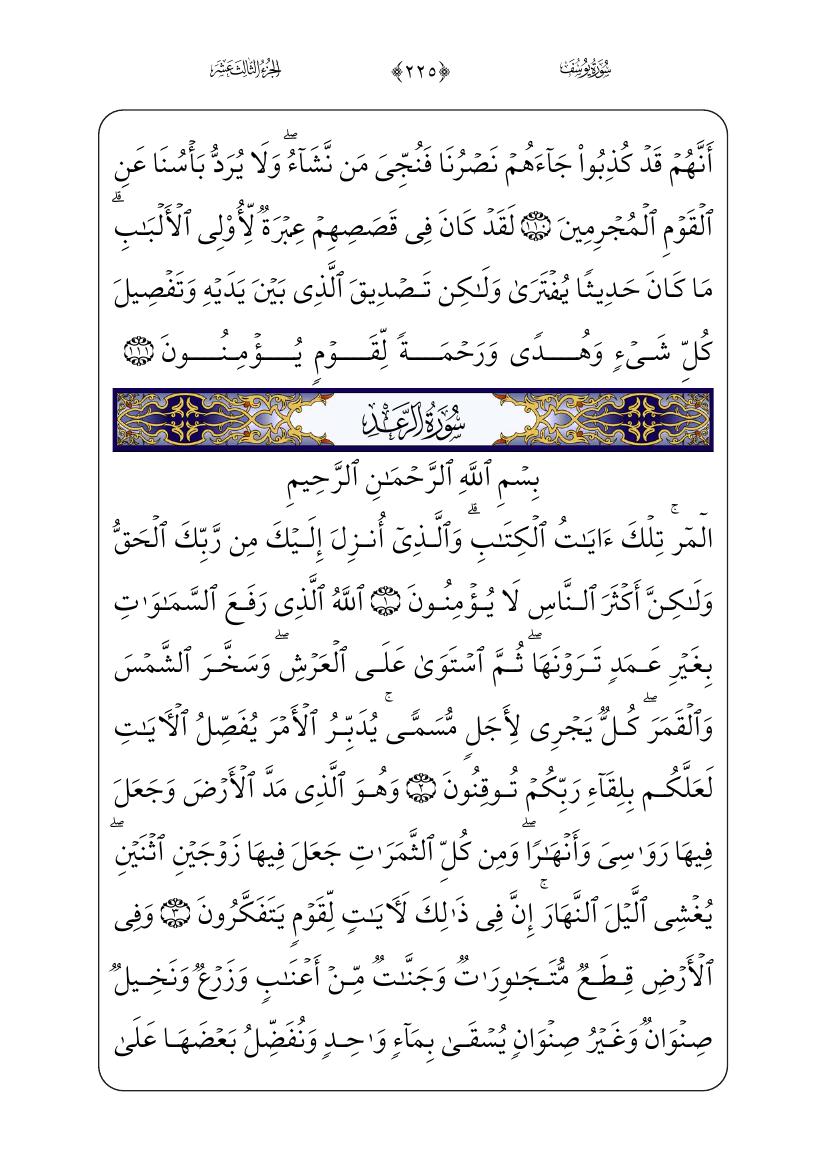 سُورَةُ يُوسُفَ ﴿٢٢٥﴾ الجُزْءُ الثَّالِثَ عَشَرَ
أَنَّهُمۡ قَدۡ كُذِبُواْ جَآءَهُمۡ نَصۡرُنَا فَنُجِّيَ مَن نَّشَآءُۖ وَلَا يُرَدُّ بَأۡسُنَا عَنِ
ٱلۡقَوۡمِ ٱلۡمُجۡرِمِينَ ١١٠ لَقَدۡ كَانَ فِي قَصَصِهِمۡ عِبۡرَةٞ لِّأُوْلِي ٱلۡأَلۡبَٰبِۗ
مَا كَانَ حَدِيثٗا يُفۡتَرَىٰ وَلَٰكِن تَصۡدِيقَ ٱلَّذِي بَيۡنَ يَدَيۡهِ وَتَفۡصِيلَ
كُلِّ شَيۡءٖ وَهُدٗى وَرَحۡمَةٗ لِّقَوۡمٖ يُؤۡمِنُونَ ١١١
سُورَةُ الرَّعْدِ
بِسۡمِ ٱللَّهِ ٱلرَّحۡمَٰنِ ٱلرَّحِيمِ
الٓمٓرۚ تِلۡكَ ءَايَٰتُ ٱلۡكِتَٰبِۗ وَٱلَّذِيٓ أُنزِلَ إِلَيۡكَ مِن رَّبِّكَ ٱلۡحَقُّ
وَلَٰكِنَّ أَكۡثَرَ ٱلنَّاسِ لَا يُؤۡمِنُونَ ١ ٱللَّهُ ٱلَّذِي رَفَعَ ٱلسَّمَٰوَٰتِ
بِغَيۡرِ عَمَدٖ تَرَوۡنَهَاۖ ثُمَّ ٱسۡتَوَىٰ عَلَى ٱلۡعَرۡشِۖ وَسَخَّرَ ٱلشَّمۡسَ
وَٱلۡقَمَرَۖ كُلّٞ يَجۡرِي لِأَجَلٖ مُّسَمّٗىۚ يُدَبِّرُ ٱلۡأَمۡرَ يُفَصِّلُ ٱلۡأٓيَٰتِ
لَعَلَّكُم بِلِقَآءِ رَبِّكُمۡ تُوقِنُونَ ٢ وَهُوَ ٱلَّذِي مَدَّ ٱلۡأَرۡضَ وَجَعَلَ
فِيهَا رَوَٰسِيَ وَأَنۡهَٰرٗاۖ وَمِن كُلِّ ٱلثَّمَرَٰتِ جَعَلَ فِيهَا زَوۡجَيۡنِ ٱثۡنَيۡنِۖ
يُغۡشِي ٱلَّيۡلَ ٱلنَّهَارَۚ إِنَّ فِي ذَٰلِكَ لَأٓيَٰتٖ لِّقَوۡمٖ يَتَفَكَّرُونَ ٣ وَفِي
ٱلۡأَرۡضِ قِطَعٞ مُّتَجَٰوِرَٰتٞ وَجَنَّٰتٞ مِّنۡ أَعۡنَٰبٖ وَزَرۡعٞ وَنَخِيلٞ
صِنۡوَانٞ وَغَيۡرُ صِنۡوَانٖ يُسۡقَىٰ بِمَآءٖ وَٰحِدٖ وَنُفَضِّلُ بَعۡضَهَا عَلَىٰ